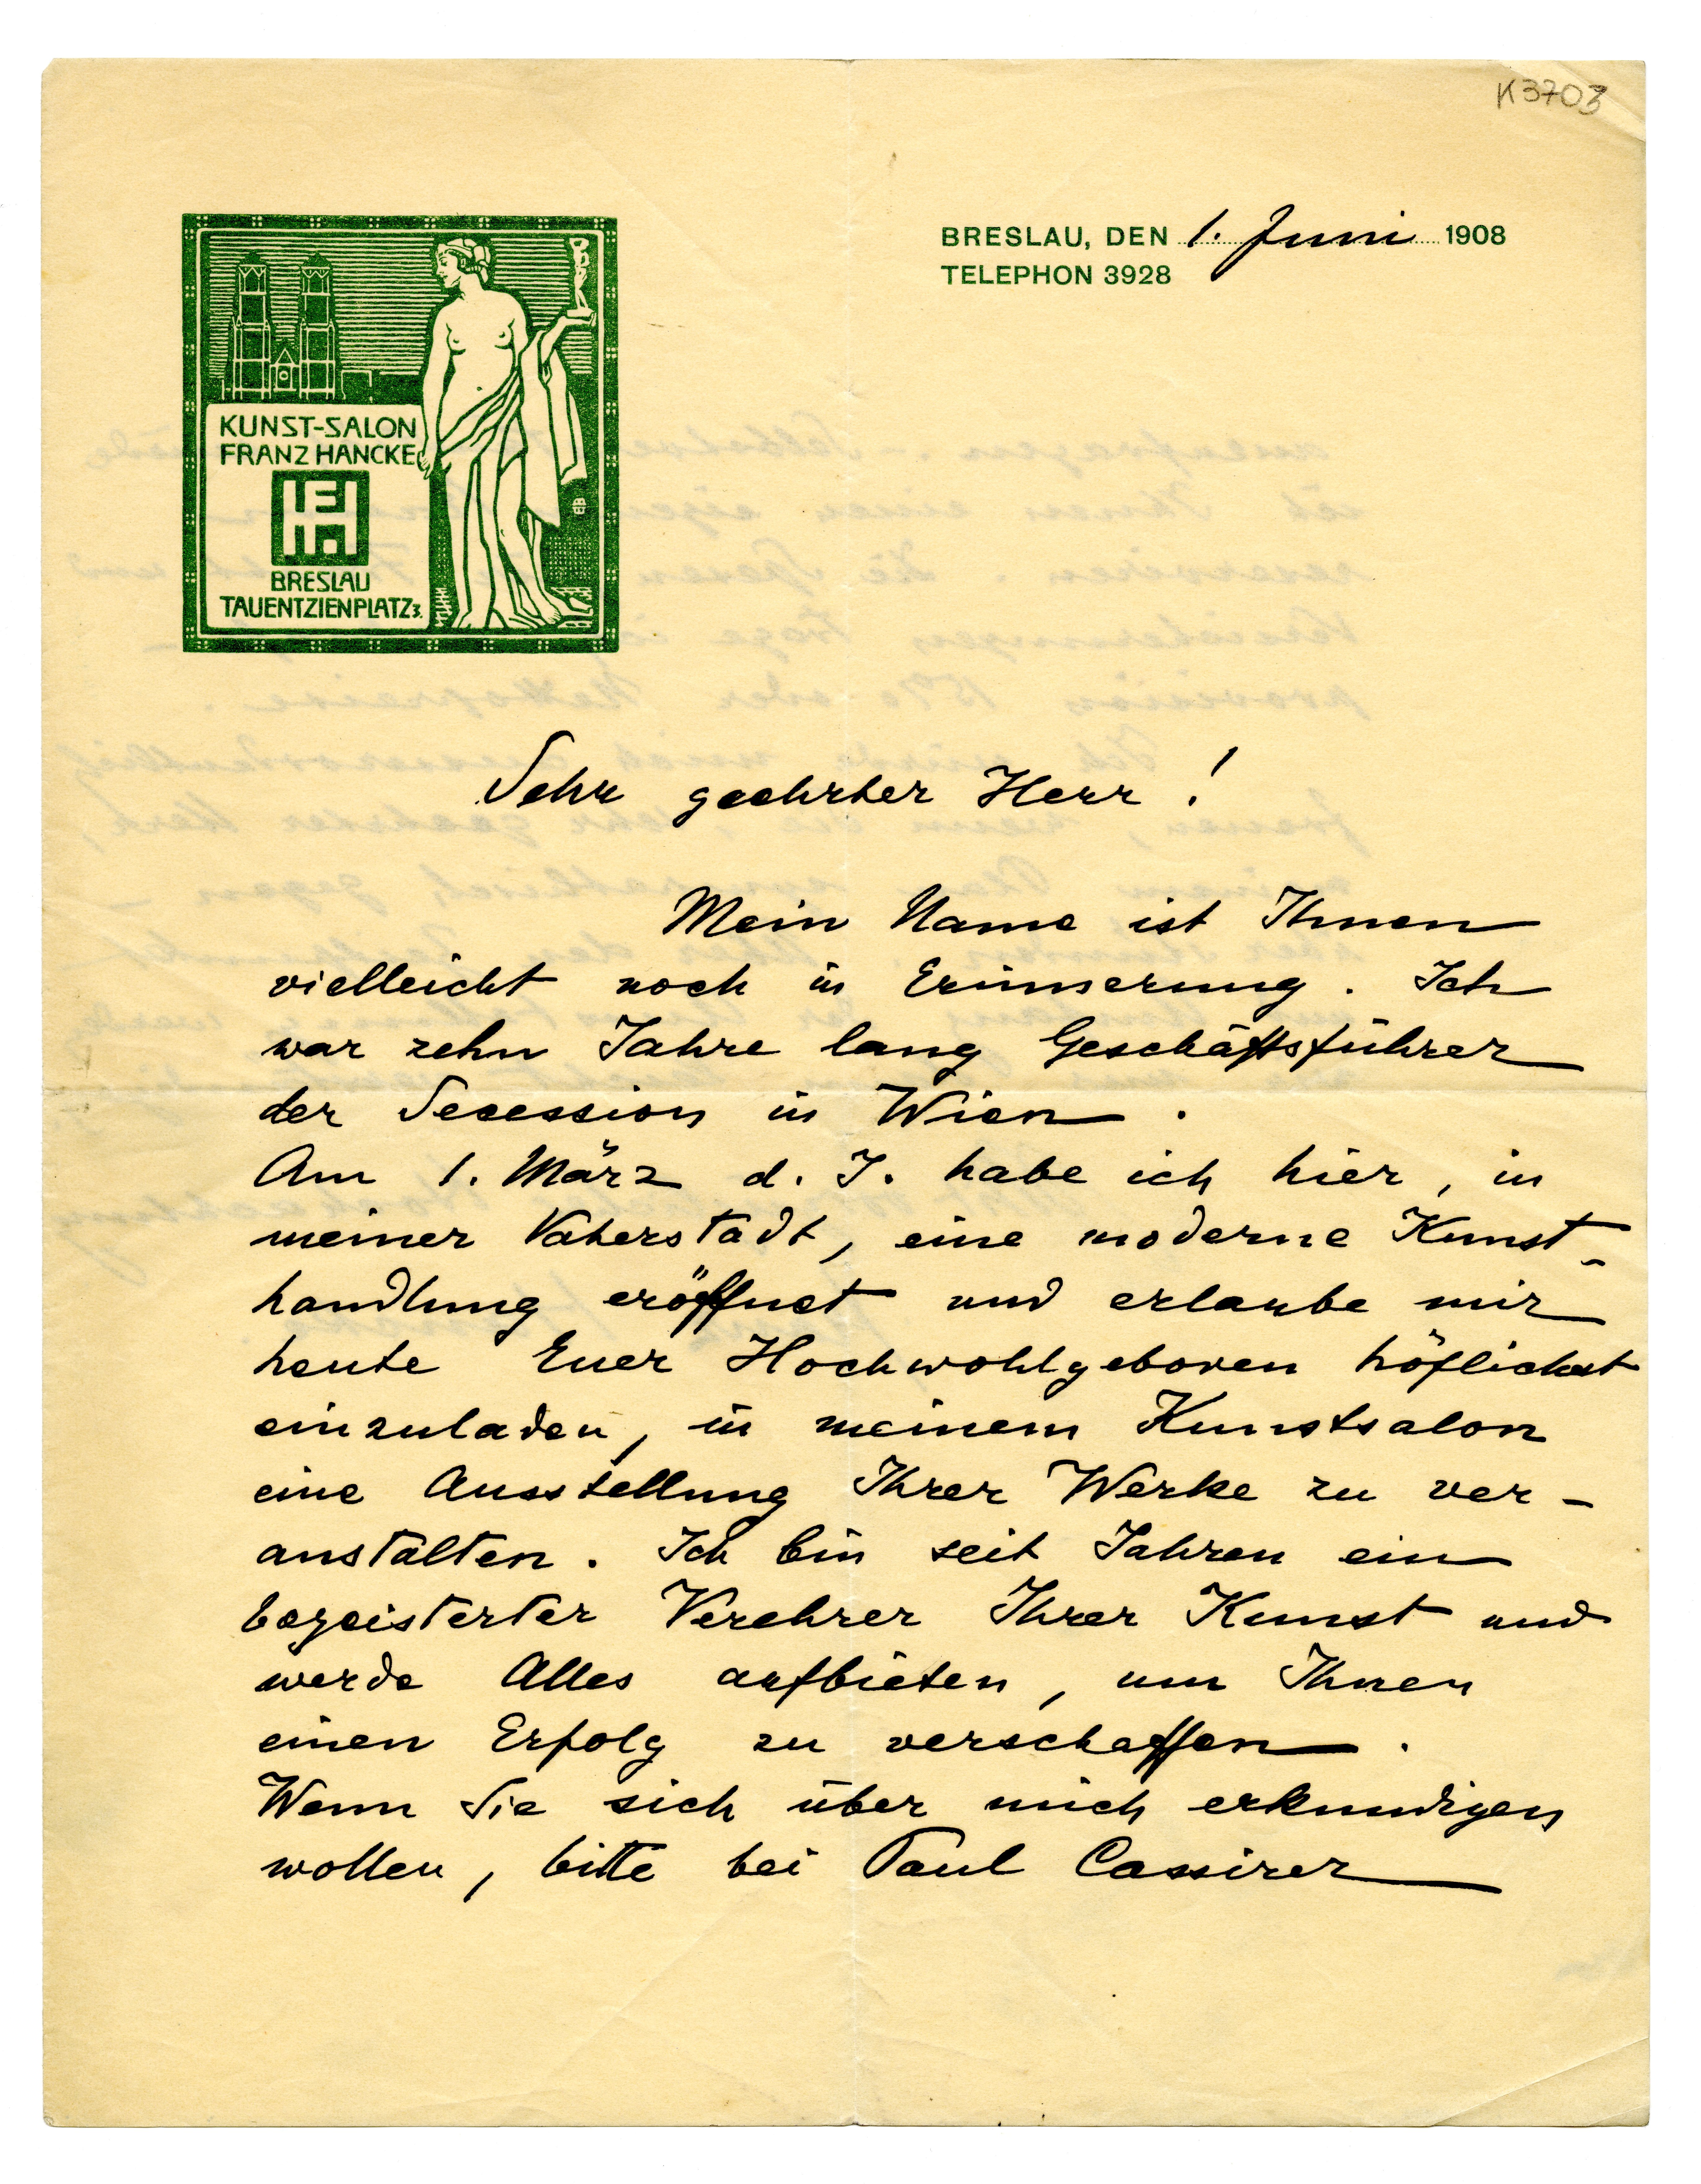 K3703
BRESLAU, DEN 1. Juni 1908
TELEPHON 3928
KUNST-SALON
FRANZ HANCKE
BRESLAU
TAUENTZIENPLATZ 3.
Sehr geehrter Herr !
Mein Name ist Ihnen
vielleicht noch in Erinnerung. Ich
war zehn Jahre lang Geschäftsführer
der Secession in Wien.
Am 1. März d. J. habe ich hier, in
meiner Vaterstadt, eine moderne Kunst-
handlung eröffnet und erlaube mir
heute Euer Hochwohlgeboren höflichst
einzuladen, in meinem Kunstsalon
eine Ausstellung Ihrer Werke zu ver-
anstalten. Ich bin seit Jahren ein
begeisterter Verehrer Ihrer Kunst und
werde Alles aufbieten, um Ihnen
einen Erfolg zu verschaffen.
Wenn Sie sich über mich erkundigen
wollen, bitte bei Paul Cassirer